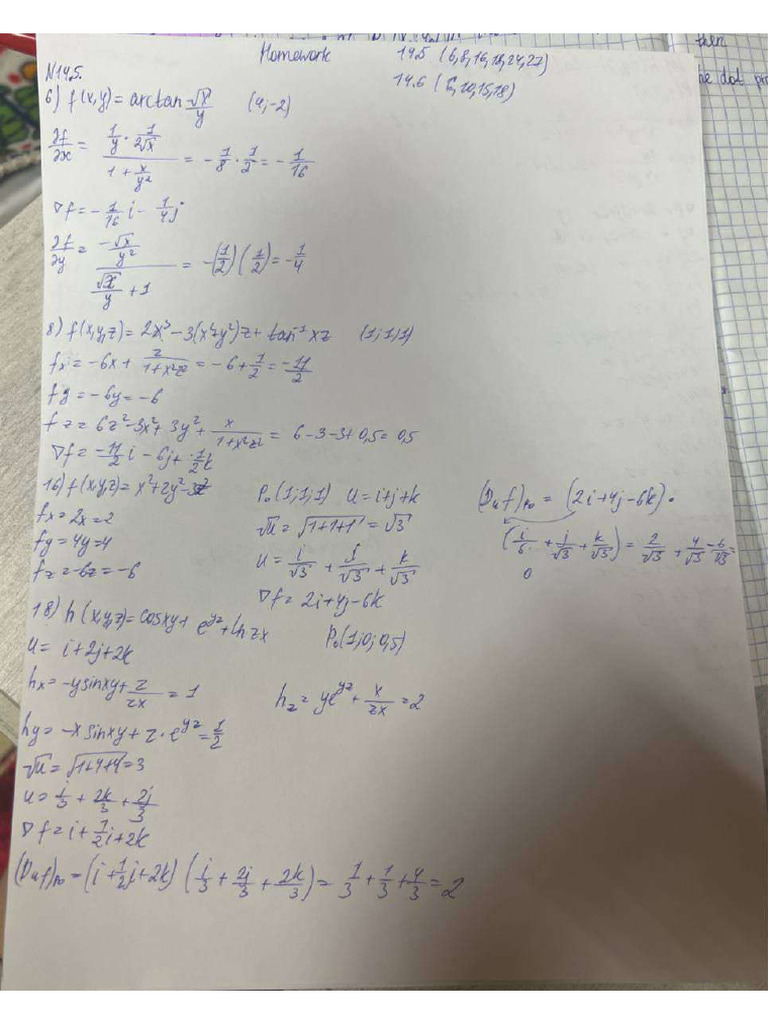 Homework
14.5 (6,8,16,18,24,27)
14.6 (6,10,15,18)
then
dot pro
N14.5.
6) f(x,y) = arctan √x/y (4;-2)
∂f/∂x = (1/y · 1/2√x)/(1 + x/y²) = -1/8 · 1/2 = -1/16
∇f = -1/16 i - 1/4 j
∂f/∂y = (-√x/y²)/(√x/y + 1) = -(1/2)(1/2) = -1/4
8) f(x,y,z) = 2x³ - 3(x²+y²)z + tan⁻¹ xz (1;1,1)
fx = -6x + z/(1+x²z²) = -6 + 1/2 = -11/2
fy = -6y = -6
fz = 6z² - 3x² + 3y² + x/(1+x²z²) = 6-3-3+0,5 = 0,5
∇f = -11/2 i - 6j + 1/2 k
16) f(x,y,z) = x² + 2y² - 3z² P₀(1;1;1) u = i+j+k
fx = 2x = 2
fy = 4y = 4
fz = -6z = -6
√u = √1+1+1 = √3
u = i/√3 + j/√3 + k/√3
∇f = 2i + 4j - 6k
(Duf)P₀ = (2i + 4j - 6k) ·
(i/6 + j/√3 + k/√3) = 2/√3 + 4/√3 - 6/√3 =
0
18) h(x,y,z) = cosxy + e^yz + ln zx P₀(1;0;0,5)
u = i + 2j + 2k
hx = -y sinxy + z/zx = 1
hz = ye^yz + x/zx = 2
hy = -x sinxy + z · e^yz = 1/2
√u = √1+4+4 = 3
u = i/3 + 2k/3 + 2j/3
∇f = i + 1/2 i + 2k
(Duf)P₀ = (i + 1/2 j + 2k) (i/3 + 2j/3 + 2k/3) = 1/3 + 1/3 + 4/3 = 2